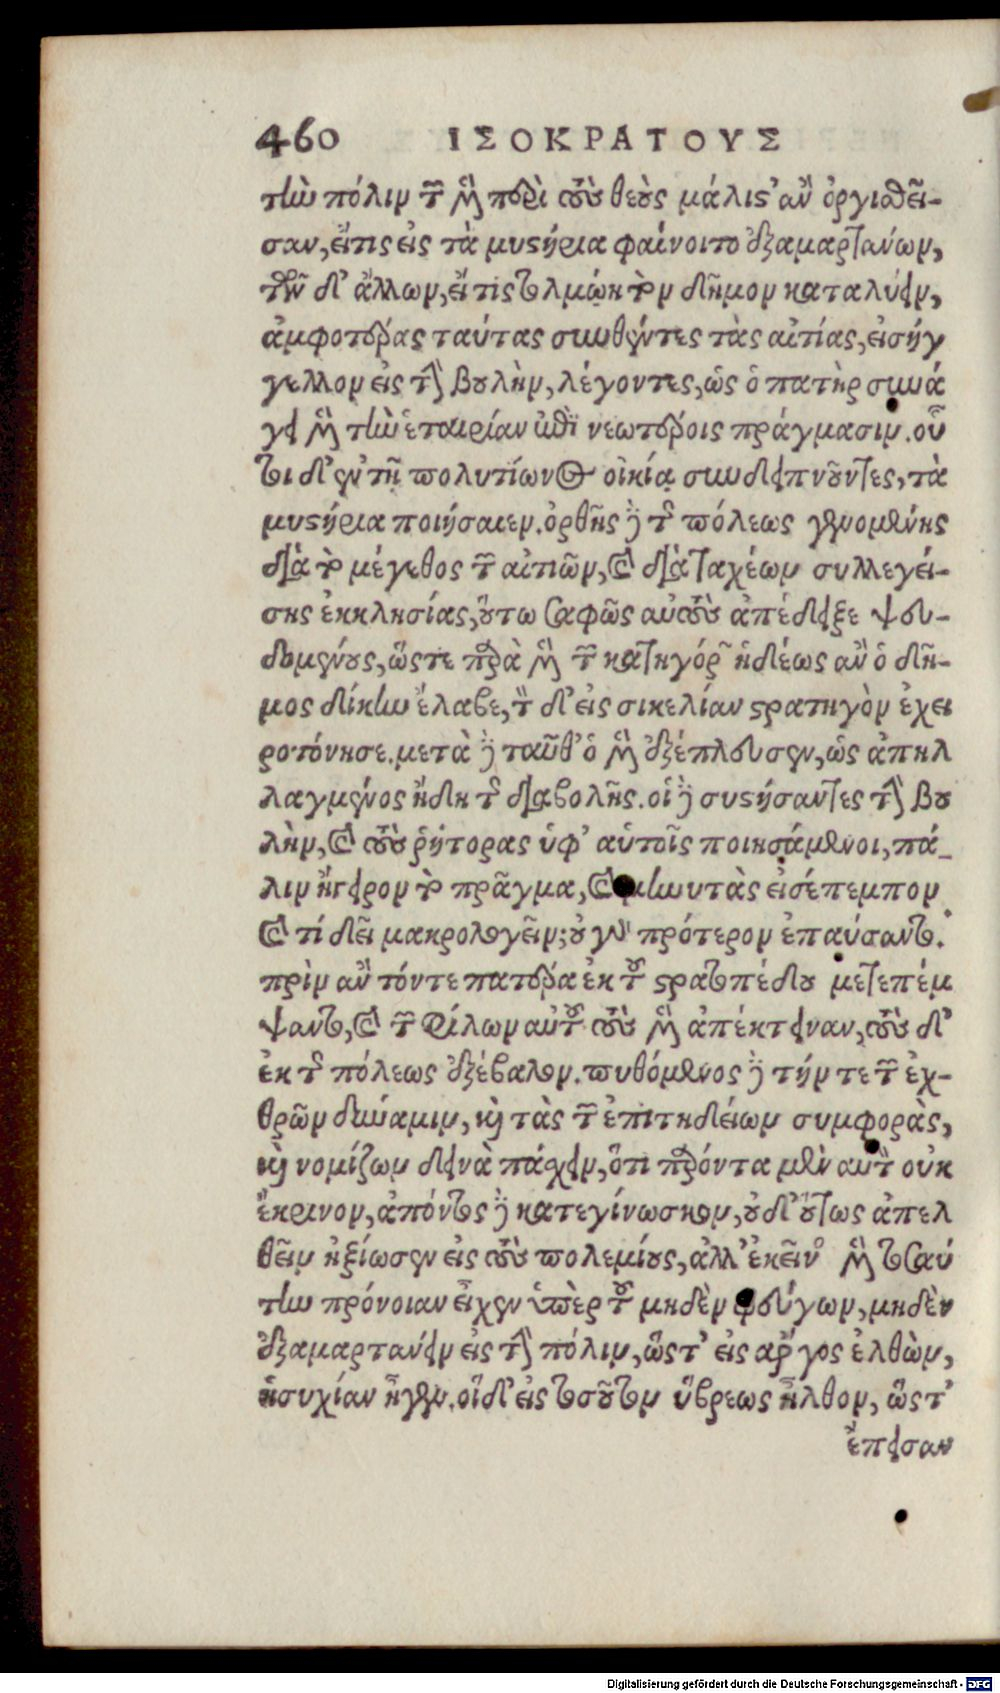 460 ΙΣΟΚΡΑΤΟΥΣ
τὴν πόλιν τῶν μὲν περὶ τοὺς θεοὺς μάλιστ' ἂν ὀργισθεῖ-
σαν, εἴ τις εἰς τὰ μυστήρια φαίνοιτο ἐξαμαρτάνων,
τῶν δ' ἄλλων, εἴ τις τολμῴη τὸν δῆμον καταλύειν,
ἀμφοτέρας ταύτας συνθέντες τὰς αἰτίας, εἰσήγ
γελλον εἰς τὴν βουλὴν, λέγοντες, ὡς ὁ πατὴρ συνά
γει μὲν τὴν ἑταιρίαν ἐπὶ νεωτέροις πράγμασιν. οὗ
τοι δ' ἐν τῇ πολυτίωνος οἰκίᾳ συνδειπνοῦντες, τὰ
μυστήρια ποιήσαιεν. ὀρθῆς δὲ τῆς πόλεως γενομένης
διὰ τὸ μέγεθος τῶν αἰτιῶν, καὶ διὰ ταχέων συλλεγεί-
σης ἐκκλησίας, οὕτω σαφῶς αὐτοὺς ἀπέδειξε ψευ-
δομένους, ὥστε παρὰ μὲν τῶν κατηγόρων ἡδέως ἂν ὁ δῆ-
μος δίκην ἔλαβε, τὸν δ' εἰς σικελίαν στρατηγὸν ἐχει
ροτόνησε. μετὰ δὲ ταῦθ' ὁ μὲν ἐξέπλευσεν, ὡς ἀπηλ
λαγμένος ἤδη τῆς διαβολῆς. οἱ δὲ συστήσαντες τὴν βου
λὴν, καὶ τοὺς ῥήτορας ὑφ' αὑτοῖς ποιησάμενοι, πά-
λιν ἤγειρον τὸ πρᾶγμα, καὶ μηνυτὰς εἰσέπεμπον.
καὶ τί δεῖ μακρολογεῖν; οὐ γὰρ πρότερον ἐπαύσαντο.
πρὶν ἂν τόν τε πατέρα ἐκ τοῦ στρατοπέδου μετεπέμ
ψαντο, καὶ τῶν φίλων αὐτοῦ τοὺς μὲν ἀπέκτειναν, τοὺς δ'
ἐκ τῆς πόλεως ἐξέβαλον. πυθόμενος δὲ τήν τε τῶν ἐχ-
θρῶν δύναμιν, καὶ τὰς τῶν ἐπιτηδείων συμφορὰς,
καὶ νομίζων δεινὰ πάσχειν, ὅτι παρόντα μὲν αὐτὸν οὐκ
ἔκρινον, ἀπόντος δὲ κατεγίνωσκον, οὐδ' οὕτως ἀπελ
θεῖν ἠξίωσεν εἰς τοὺς πολεμίους, ἀλλ' ἐκεῖνος μὲν τοσαύ
την πρόνοιαν εἶχεν ὑπὲρ τοῦ μηδὲν φεύγων, μηδὲν
ἐξαμαρτάνειν εἰς τὴν πόλιν, ὥστ' εἰς ἄργος ἐλθὼν,
ἡσυχίαν ἦγεν. οἱ δ' εἰς τοσοῦτον ὕβρεως ἦλθον, ὥστ'
ἔπεισαν
Digitalisierung gefördert durch die Deutsche Forschungsgemeinschaft - DFG